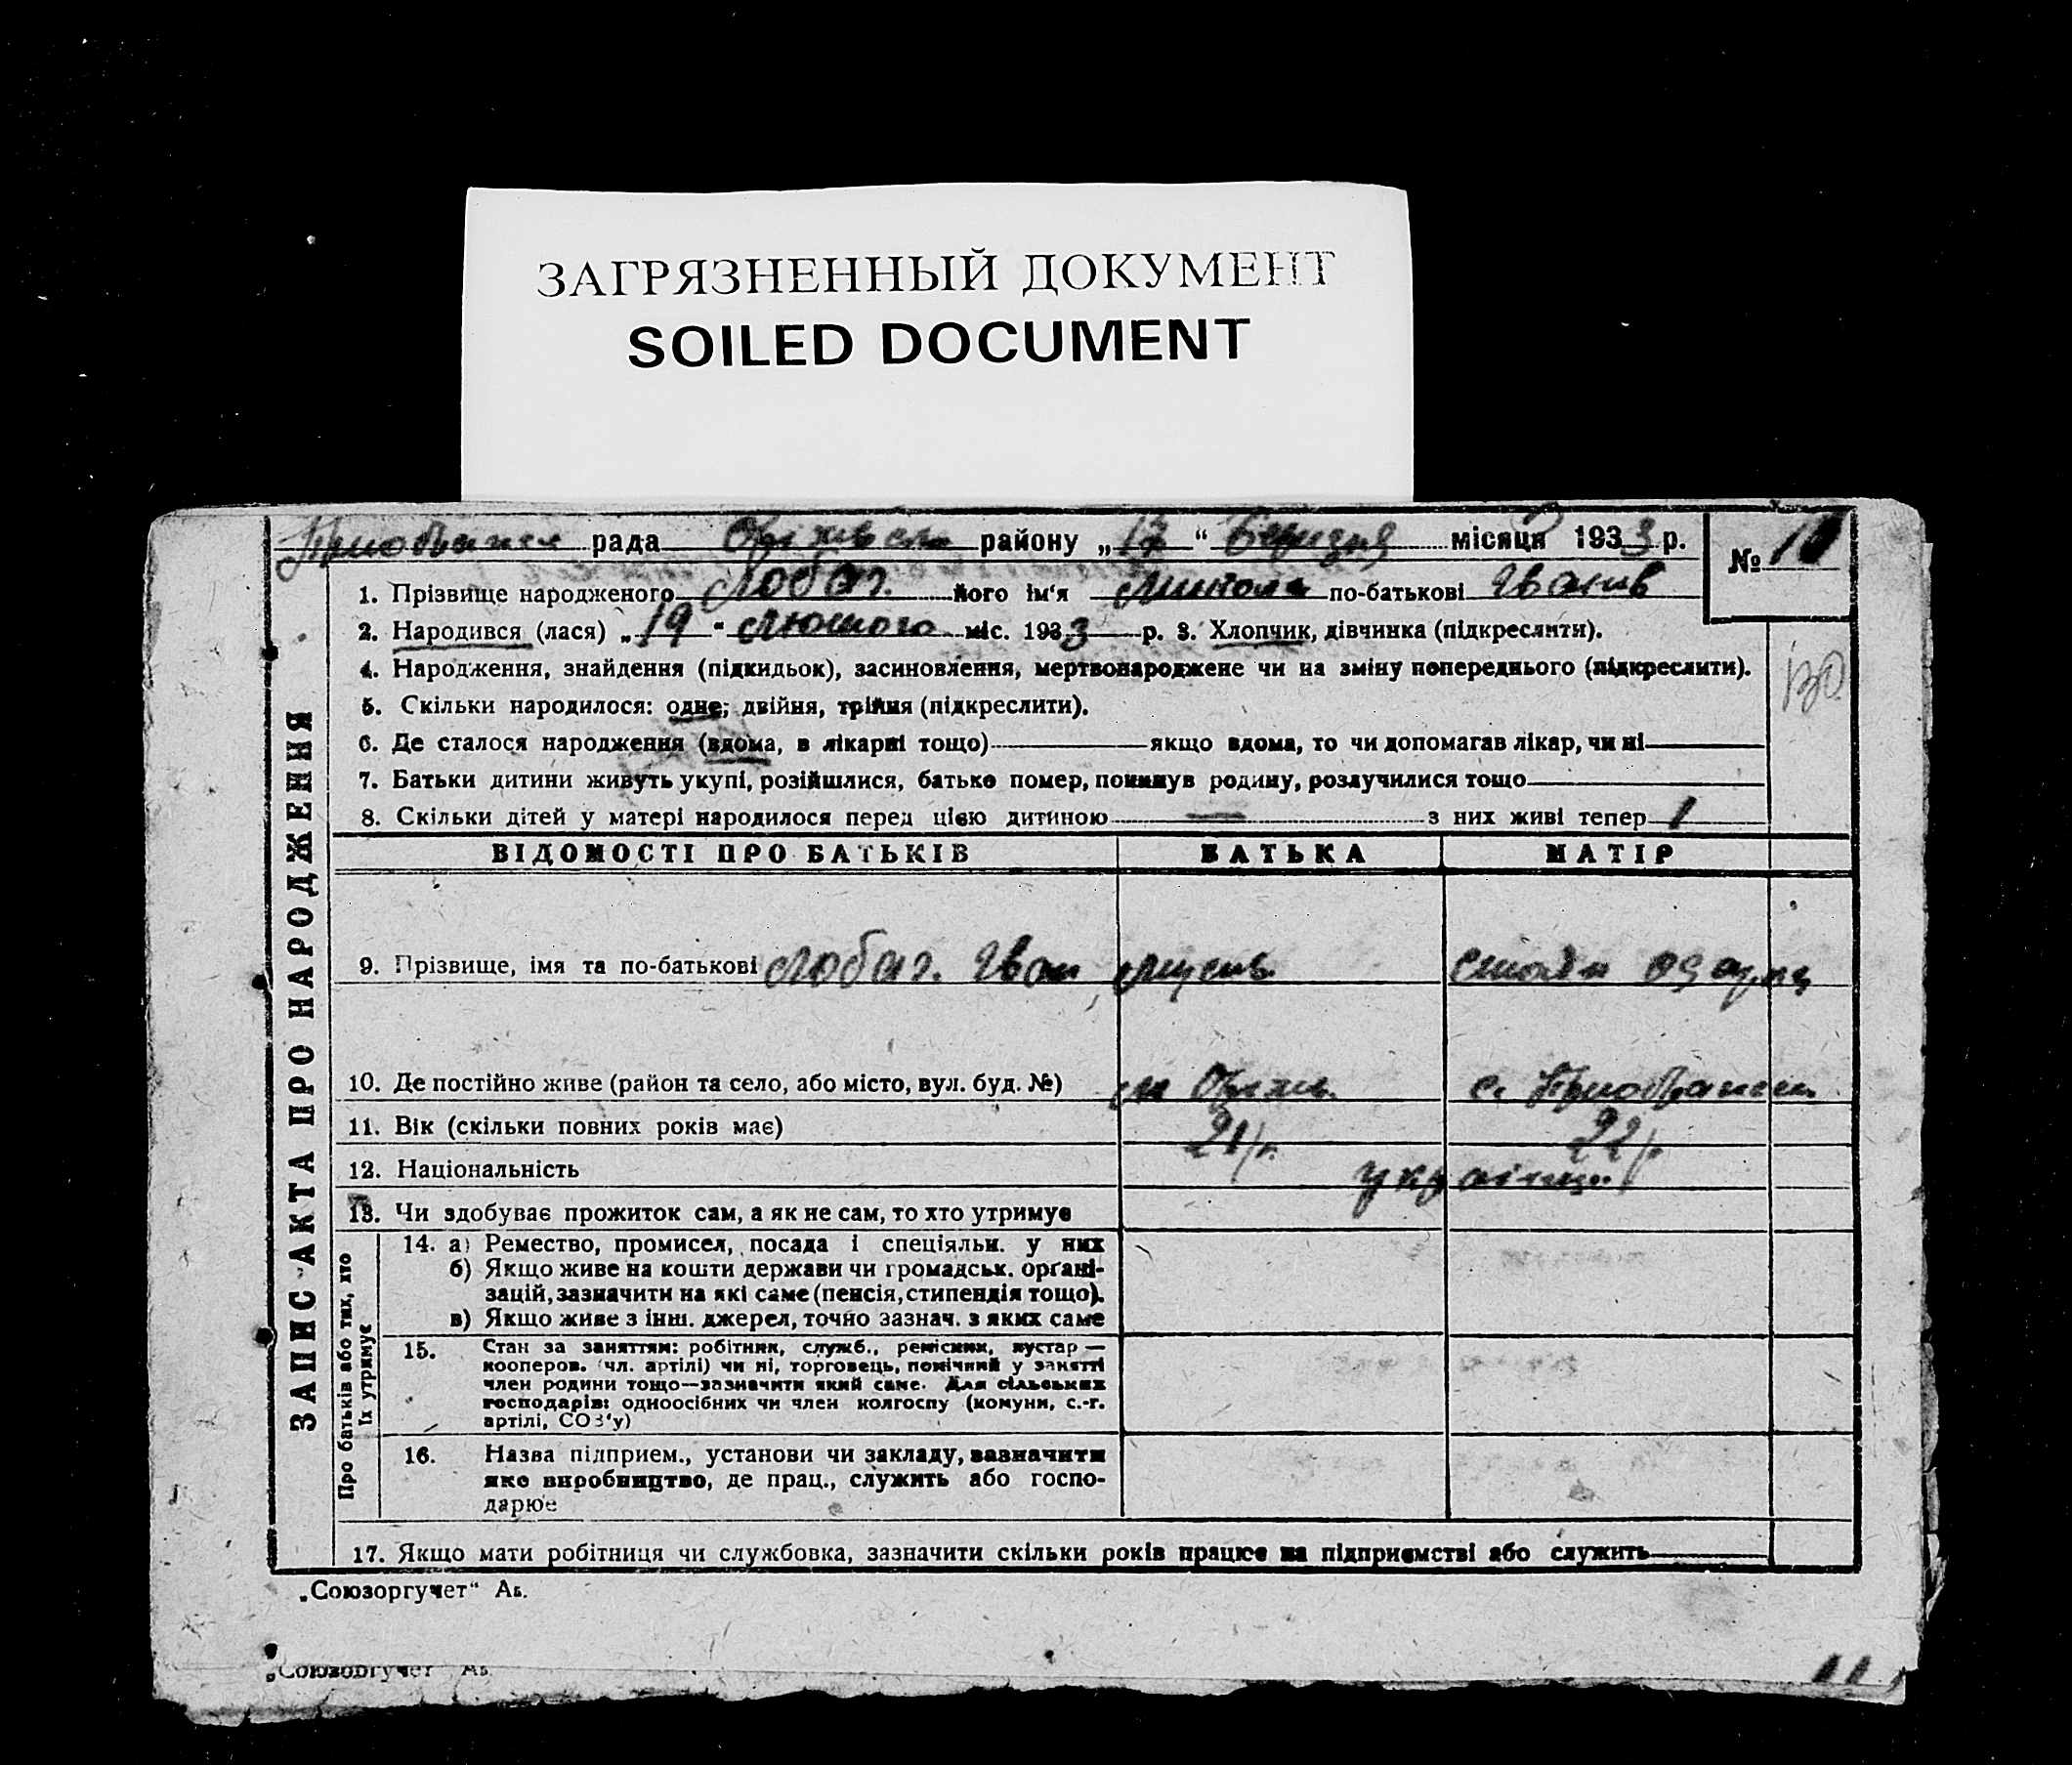 ЗАГРЯЗНЕННЫЙ ДОКУМЕНТ
SOILED DOCUMENT
рада району „17“ Березня місяця 1933 р.
№
1. Прізвище народженого Лобач. його ім‘я Микола по-батькові Іванів
2. Народився (лася) „19“ Лютого міс. 1933 р. 3. Хлопчик, дівчинка (підкреслити).
4. Народження, знайдення (підкидьок), засиновлення, мертвонароджене чи на зміну попереднього (підкреслити).
5. Скільки народилося: одне; двійня, трійня (підкреслити).
6. Де сталося народження (вдома, в лікарні тощо) якщо вдома, то чи допомагав лікар, чи ні
7. Батьки дитини живуть укупі, розійшлися, батько помер, покинув родину, розлучилися тощо
8. Скільки дітей у матері народилося перед цією дитиною — з них живі тепер 1
ВІДОМОСТІ ПРО БАТЬКІВ БАТЬКА МАТІР
9. Прізвище, імя та по-батькові Лобач. Іван
10. Де постійно живе (район та село, або місто, вул. буд. №) с.
11. Вік (скільки повних років має) 21 р. 22 р.
12. Національність україн.
13. Чи здобуває прожиток сам, а як не сам, то хто утримує
14. а) Ремество, промисел, посада і спеціяльн. у них
б) Якщо живе на кошти держави чи громадськ. орґані-
зацій, зазначити на які саме (пенсія, стипендія тощо).
в) Якщо живе з інш. джерел, точно зазнач. з яких саме
15. Стан за заняттям: робітник, служб., ремісник, кустар —
кооперов. (чл. артілі) чи ні, торговець, помічний у занятті
член родини тощо—зазначити який саме. Для сільських
господарів: одноосібних чи член колгоспу (комуни, с.-г.
артілі, СОЗ‘у)
16. Назва підприєм., установи чи закладу, зазначити
яке виробництво, де прац., служить або госпо-
дарює
17. Якщо мати робітниця чи службовка, зазначити скільки років працює на підприємстві або служить
ЗАПИС АКТА ПРО НАРОДЖЕННЯ
Про батьків або тих, хто
їх утримує
„Союзоргучет“ Ав.
„Союзоргучет“ Ав.
11